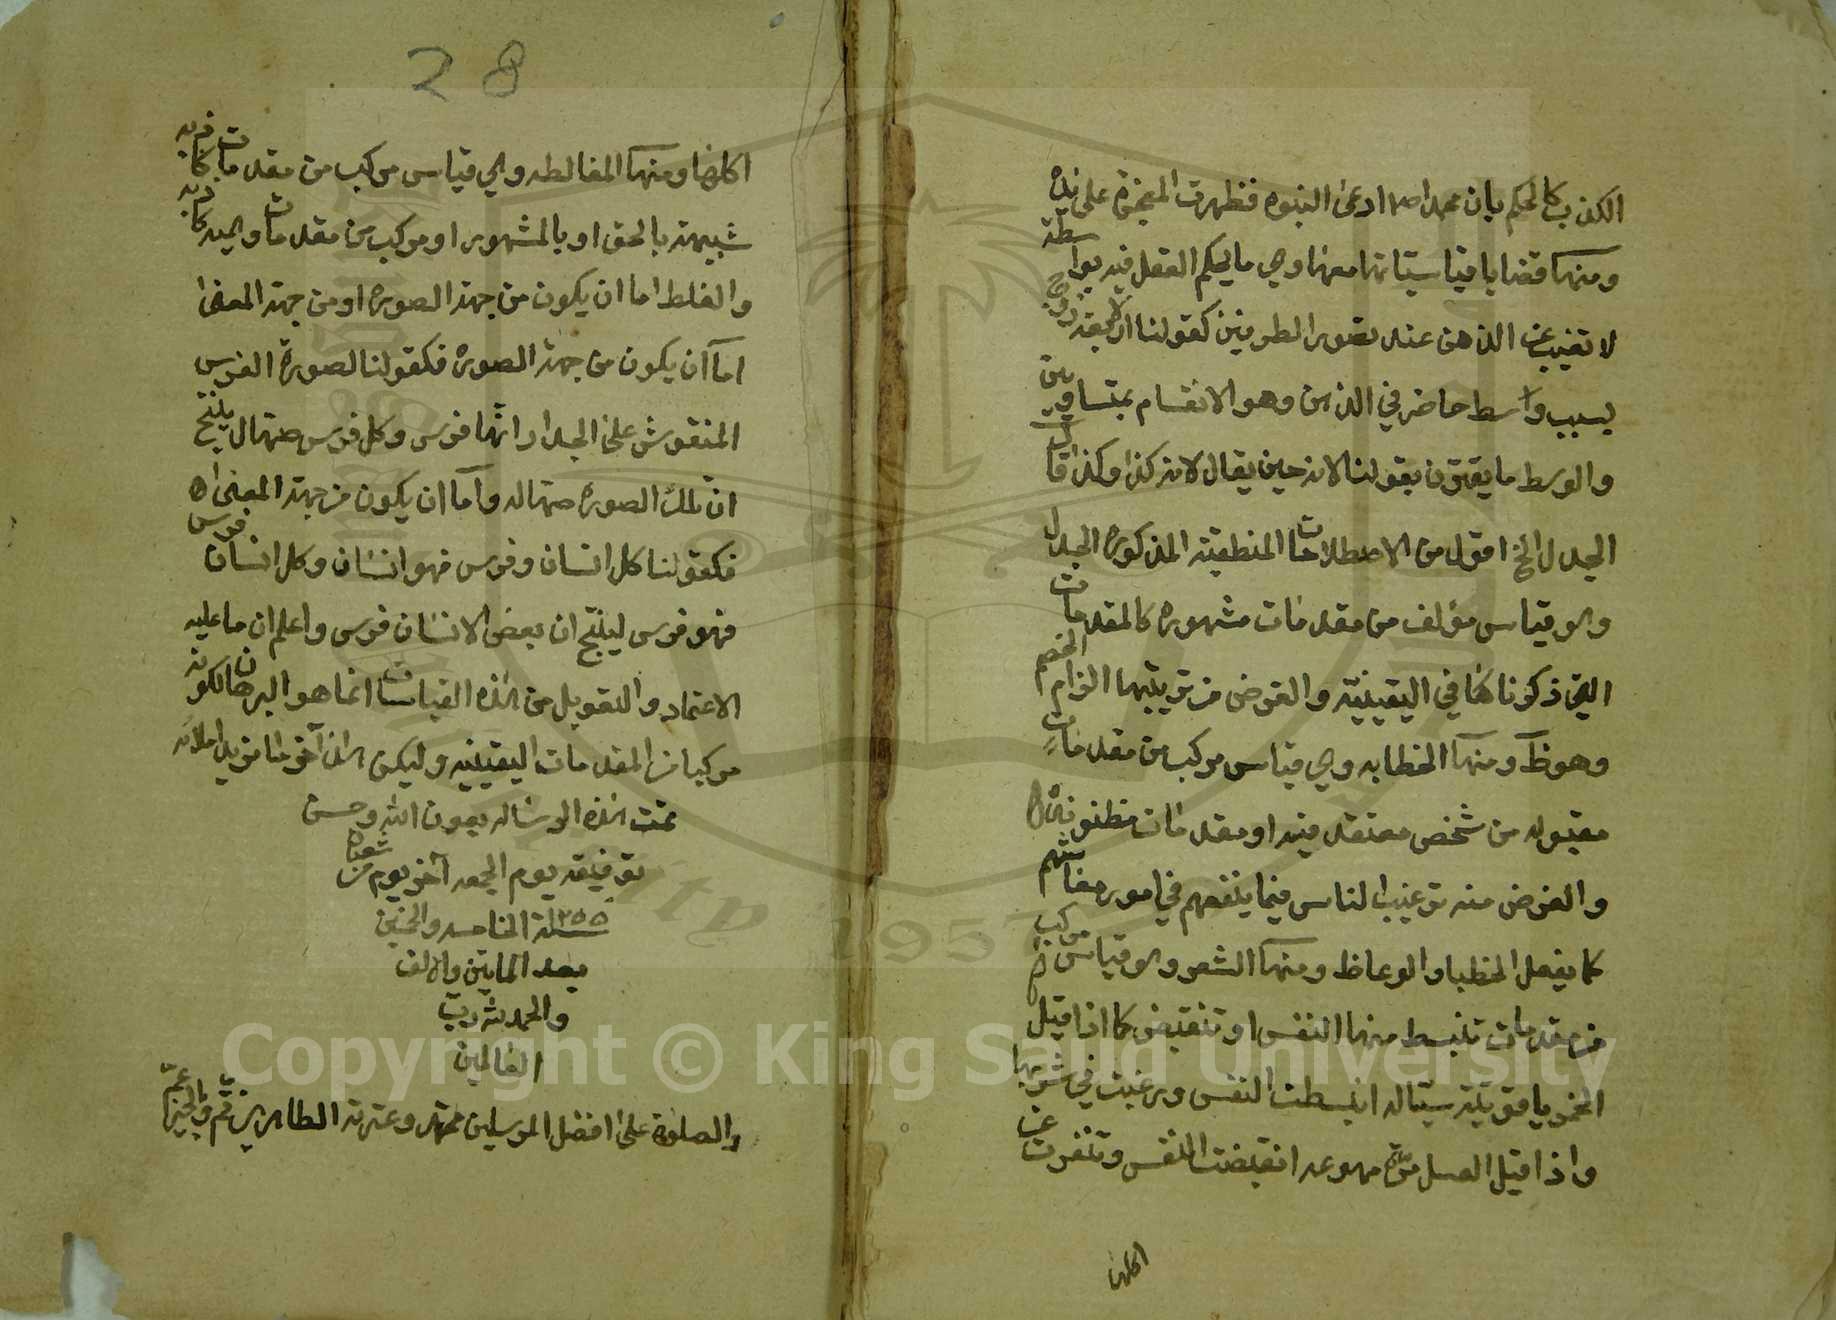 الكذب كالحكم بان محمدا صم ادعى النبوه فظهرت المعجزة على يده
ومنها قضايا قياساتها معها وهي ما يحكم العقل فيه بواسطة
لا تغيب عن الذهن عند تصور الطرفين كقولنا الاربعة زوج
بسبب واسط حاضر في الذهن وهو الانقسام بمتساويين
والوسط ما يقترن بقولنا لانه حين يقال لانه كذا وكذا قال
الجدل الخ اقول من الاصطلاحات المنطقية المذكوره الجدل
وهو قياس مؤلف من مقدمات مشهوره كالمقدمات
التي ذكرناها في اليقينية والغرض من ترتيبها الزام الخصم
وهو ظ ومنها الخطابه وهي قياس مركب من مقدمات
مقبوله من شخص معتقد فيه او مقدمات مظنونة
والغرض منه ترغيب الناس فيما ينفعهم في امور معاشهم
كما يفعل الخطبا والوعاظ ومنها الشعر وهو قياس مركب
من مقدمات تنبسط منها النفس او تنقبض كما اذا قيل
الخمر ياقوتية سيالة انبسطت النفس ورغبت في شربها
واذا قيل العسل مرة مهوعه انقبضت النفس وتنفرت عن
اكلها
28
اكلها ومنها المغالطه وهي قياس مركب من مقدمات كاذبه
شبيهة بالحق او بالمشهور او مركب من مقدمات وهميه كاذبه
والغلط اما ان يكون من جهة الصوره او من جهة المعنى
اما ان يكون من جهة الصوره فكقولنا لصورة الفرس
المنقوش على الجدار انها فرس وكل فرس صهال ينتج
ان تلك الصوره صهاله واما ان يكون من جهة المعنى
فكقولنا كل انسان وفرس فهو انسان وكل انسان وفرس
فهو فرس لينتج ان بعض الانسان فرس واعلم ان ما عليه
الاعتماد والتعويل من هذه القياسات انما هو البرهان لكونه
مركبا من المقدمات اليقينيه وليكن هذا آخر ما نريد املائه
تمت هذه الرساله بعون الله وحسن
توفيقه يوم الجمعه آخر يوم من شعبان
١٢٥٥ سنة الخامسه والخمسين
بعد المايتين والالف
والحمد لله رب
العالمين
والصلوة على افضل المرسلين محمد وعترته الطاهرين
Copyright © King Saud University
1957